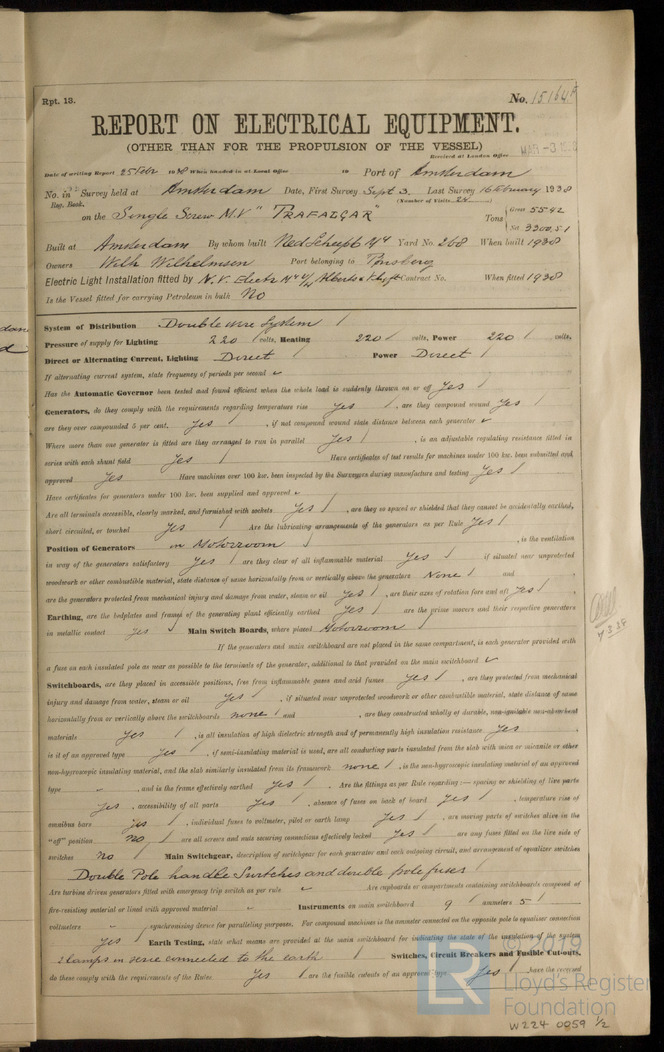 Rpt. 13.
No. 15164
REPORT ON ELECTRICAL EQUIPMENT.
(OTHER THAN FOR THE PROPULSION OF THE VESSEL)
Received at London Office
MAR -3
Date of writing Report 25 Febr 1938 When handed in at Local Office 19 Port of Amsterdam
No. in Survey held at Amsterdam Date, First Survey Sept 3. Last Survey 16 February 1938
Reg. Book. (Number of Visits 24
on the Single Screw M.V "TRAFALGAR Tons Gross 5542
Net 3300,51
Built at Amsterdam By whom built Ned. Scheepb Mij Yard No. 268 When built 1938
Owners Wilh Wilhelmsen Port belonging to Tonsberg
Electric Light Installation fitted by N.V. Electr Contract No. When fitted 1938
Is the Vessel fitted for carrying Petroleum in bulk No
System of Distribution Double wire System /
Pressure of supply for Lighting 220 / volts, Heating 220 / volts, Power 220 / volts,
Direct or Alternating Current, Lighting Direct / Power Direct /
If alternating current system, state frequency of periods per second
Has the Automatic Governor been tested and found efficient when the whole load is suddenly thrown on or off Yes /
Generators, do they comply with the requirements regarding temperature rise Yes /, are they compound wound Yes /
are they over compounded 5 per cent. Yes /, if not compound wound state distance between each generator
Where more than one generator is fitted are they arranged to run in parallel Yes /, is an adjustable regulating resistance fitted in
series with each shunt field Yes / Have certificates of test results for machines under 100 kw. been submitted and
approved Yes Have machines over 100 kw. been inspected by the Surveyors during manufacture and testing Yes /
Have certificates for generators under 100 kw. been supplied and approved
Are all terminals accessible, clearly marked, and furnished with sockets Yes /, are they so spaced or shielded that they cannot be accidentally earthed,
short circuited, or touched Yes / Are the lubricating arrangements of the generators as per Rule Yes /
Position of Generators in Motorroom /, is the ventilation
in way of the generators satisfactory Yes / are they clear of all inflammable material Yes / if situated near unprotected
woodwork or other combustible material, state distance of same horizontally from or vertically above the generators None / and ,
are the generators protected from mechanical injury and damage from water, steam or oil Yes /, are their axes of rotation fore and aft Yes /
Earthing, are the bedplates and frames of the generating plant efficiently earthed Yes / are the prime movers and their respective generators
in metallic contact Yes / Main Switch Boards, where placed Motorroom /
If the generators and main switchboard are not placed in the same compartment, is each generator provided with
a fuse on each insulated pole as near as possible to the terminals of the generator, additional to that provided on the main switchboard
Switchboards, are they placed in accessible positions, free from inflammable gases and acid fumes Yes /, are they protected from mechanical
injury and damage from water, steam or oil Yes /, if situated near unprotected woodwork or other combustible material, state distance of same
horizontally from or vertically above the switchboards none / and , are they constructed wholly of durable, non-ignitable non-absorbent
materials Yes /, is all insulation of high dielectric strength and of permanently high insulation resistance Yes ,
is it of an approved type Yes /, if semi-insulating material is used, are all conducting parts insulated from the slab with mica or micanite or other
non-hygroscopic insulating material, and the slab similarly insulated from its framework none /, is the non-hygroscopic insulating material of an approved
type , and is the frame effectively earthed Yes / Are the fittings as per Rule regarding:— spacing or shielding of live parts
Yes , accessibility of all parts Yes /, absence of fuses on back of board Yes /, temperature rise of
omnibus bars Yes /, individual fuses to voltmeter, pilot or earth lamp Yes /, are moving parts of switches alive in the
"off" position no / are all screws and nuts securing connections effectively locked Yes / are any fuses fitted on the live side of
switches no / Main Switchgear, description of switchgear for each generator and each outgoing circuit, and arrangement of equalizer switches
Double Pole handle Switches and double pole fuses /
Are turbine driven generators fitted with emergency trip switch as per rule Are cupboards or compartments containing switchboards composed of
fire-resisting material or lined with approved material Instruments on main switchboard 9 / ammeters 5 /
voltmeters synchronising device for paralleling purposes. For compound machines is the ammeter connected on the opposite pole to equaliser connection
Yes / Earth Testing, state what means are provided at the main switchboard for indicating the state of the insulation of the system
2 lamps in serie connected to the earth / Switches, Circuit Breakers and Fusible Cut-outs,
do these comply with the requirements of the Rules Yes / are the fusible cutouts of an approved type Yes /, have the reversed
7.3.38
LR
© 2019
Lloyd's Register
Foundation
W224 0059 1/2